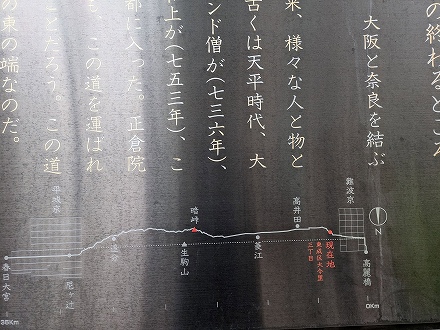 の終わるところ
大阪と奈良を結ぶ
来、様々な人と物と
古くは天平時代、大
ンド僧が(七三六年)、
上が(七五三年)、こ
都に入った。正倉院
、この道を運ばれ
ことだろう。この道
の東の端なのだ。
難波京
高麗橋
0Km
N
現在地
東成区大今里
三丁目
高井田
菱江
暗峠
生駒山
追分
尼ヶ辻
平城京
春日大宮
35Km